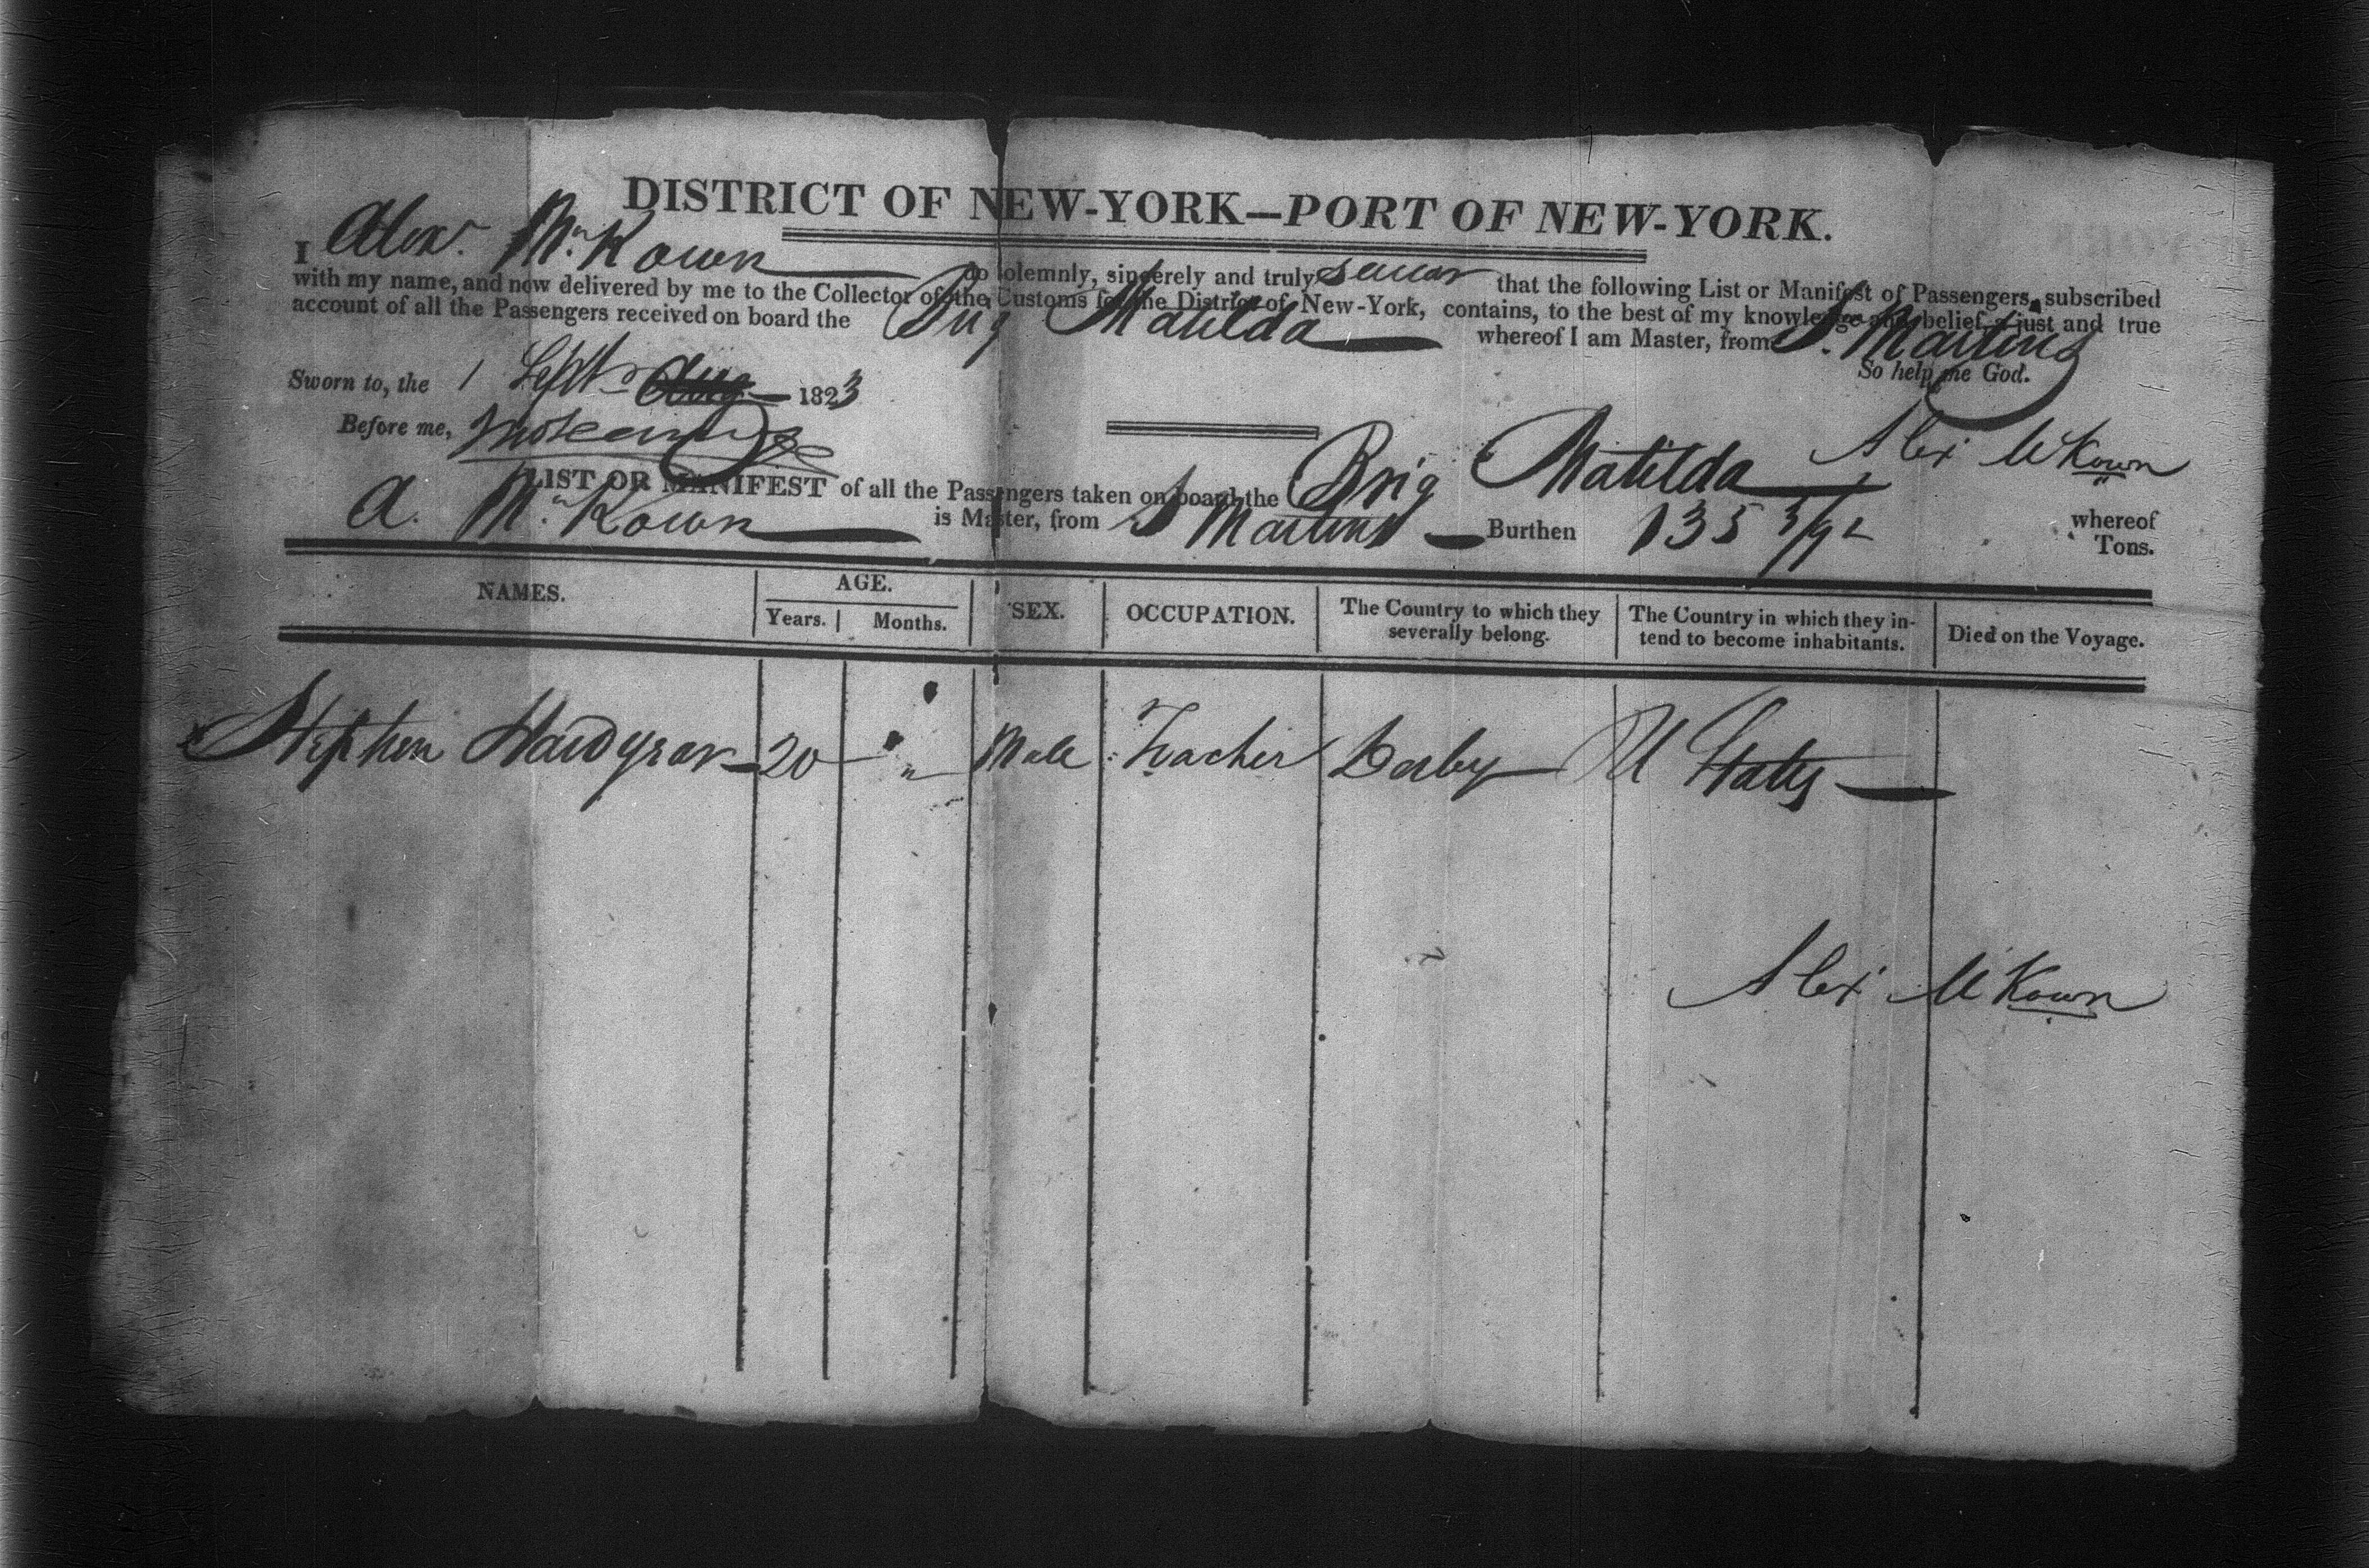 DISTRICT OF NEW-YORK—PORT OF NEW-YORK.
I Alexr. McKown do solemnly, sincerely and truly swear that the following List or Manifest of Passengers, subscribed
with my name, and now delivered by me to the Collector of the Customs for the District of New-York, contains, to the best of my knowledge and belief, a just and true
account of all the Passengers received on board the Brig Matilda whereof I am Master, from St. Martins
So help me God.
Sworn to, the 1 Sept Aug 1823
Before me,
Alex McKown
LIST OR MANIFEST of all the Passengers taken on board the Brig Matilda whereof
A. McKown is Master, from St Martins Burthen 135 3/92 Tons.
NAMES. AGE. Years. Months. SEX. OCCUPATION. The Country to which they severally belong. The Country in which they intend to become inhabitants. Died on the Voyage.
Stephen 20 " Male Teacher Derby U States
Alex McKown